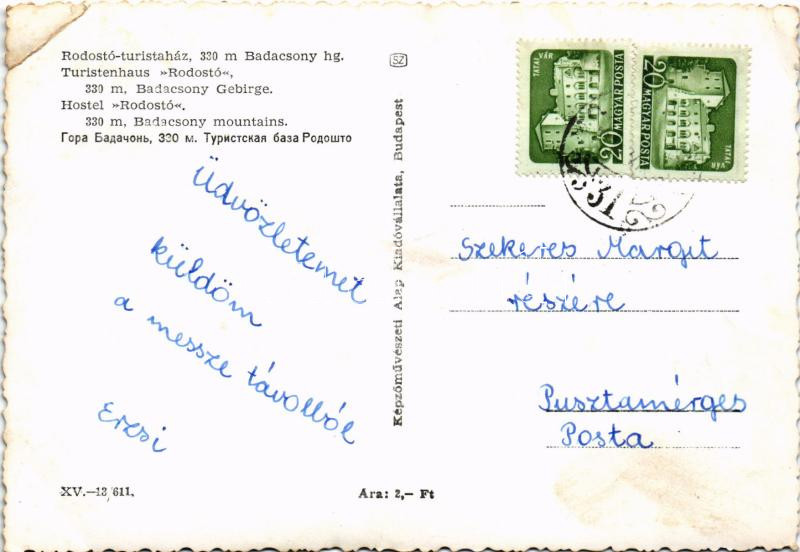 Rodostó-turistaház, 330 m Badacsony hg.
Turistenhaus »Rodostó«,
330 m, Badacsony Gebirge.
Hostel »Rodostó«.
330 m, Badacsony mountains.
Гора Бадачонь, 330 м. Туристская база Родошто
Üdvözletemet
küldöm
a messze távolból
Erzsi
XV.—13/611.
Ára: 2,— Ft
SZ
Képzőművészeti Alap Kiadóvállalata, Budapest
TATAI VÁR
20 MAGYAR POSTA
TATAI VÁR
20 MAGYAR POSTA
Szekeres Margit
részére
Pusztamérges
Posta